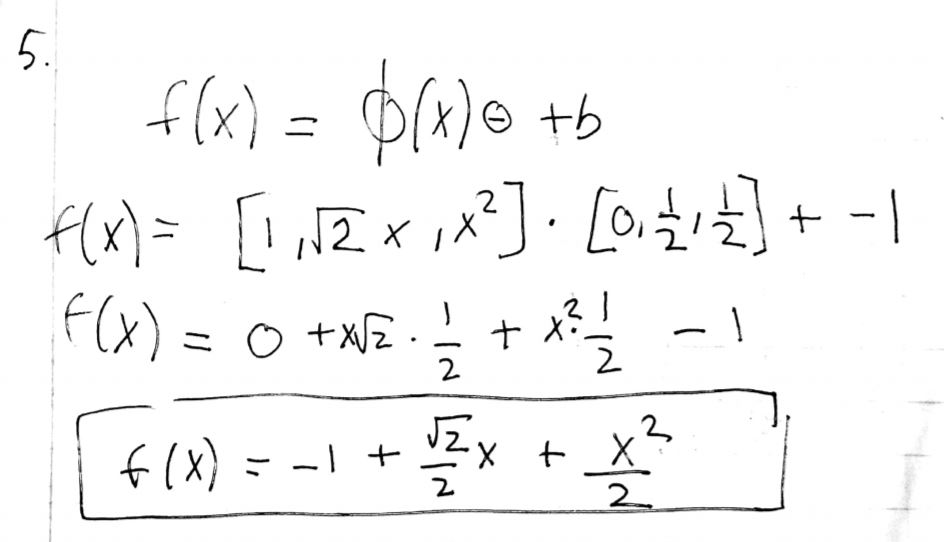 5.
f(x) = ϕ(x)θ + b
f(x) = [1, √2 x, x²] · [0, 1/2, 1/2] + -1
f(x) = 0 + x√2 · 1/2 + x² · 1/2 - 1
f(x) = -1 + √2/2 x + x²/2